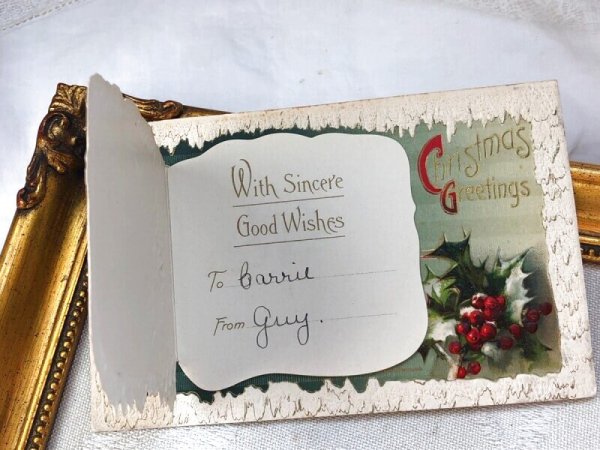 With Sincere
Good Wishes
To Carrie
From Guy.
Christmas
Greetings